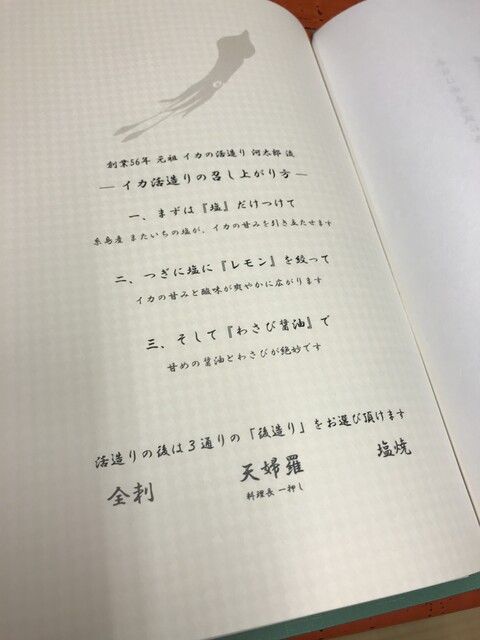 創業56年 元祖 イカの活造り 河太郎 流
― イカ活造りの召し上がり方 ―
一、まずは『塩』だけつけて
糸島産 またいちの塩が、イカの甘みを引き立たせます
二、つぎに塩に『レモン』を絞って
イカの甘みと酸味が爽やかに広がります
三、そして『わさび醤油』で
甘めの醤油とわさびが絶妙です
活造りの後は３通りの「後造り」をお選び頂けます
全刺
天婦羅
料理長 一押し
塩焼